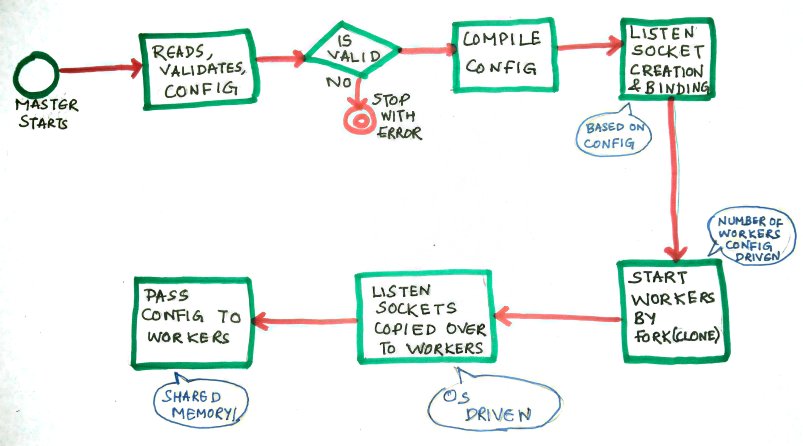 MASTER
STARTS
READS,
VALIDATES,
CONFIG
IS
VALID
NO
STOP
WITH
ERROR
COMPILE
CONFIG
LISTEN
SOCKET
CREATION
& BINDING
BASED ON
CONFIG
NUMBER OF
WORKERS
CONFIG
DRIVEN
START
WORKERS
BY
FORK(CLONE)
LISTEN
SOCKETS
COPIED OVER
TO WORKERS
OS
DRIVEN
PASS
CONFIG TO
WORKERS
SHARED
MEMORY/